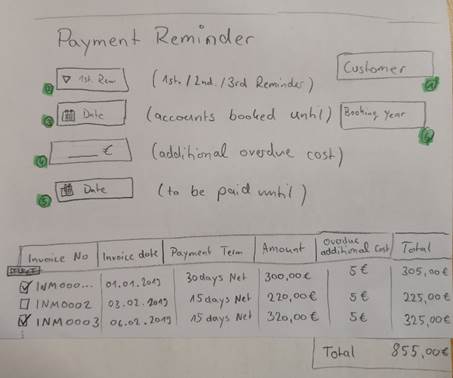 Payment Reminder
Customer
1st. Rem (1st./2nd./3rd Reminder)
Date (accounts booked until)
Booking year
€ (additional overdue cost)
Date (to be paid until)
Invoice No Invoice date Payment Term Amount overdue additional cost Total
INM000... 01.01.2019 30days Net 300,00€ 5€ 305,00€
INM0002 03.02.2019 15days Net 220,00€ 5€ 225,00€
INM0003 06.02.2019 15days Net 320,00€ 5€ 325,00€
Total 855,00€